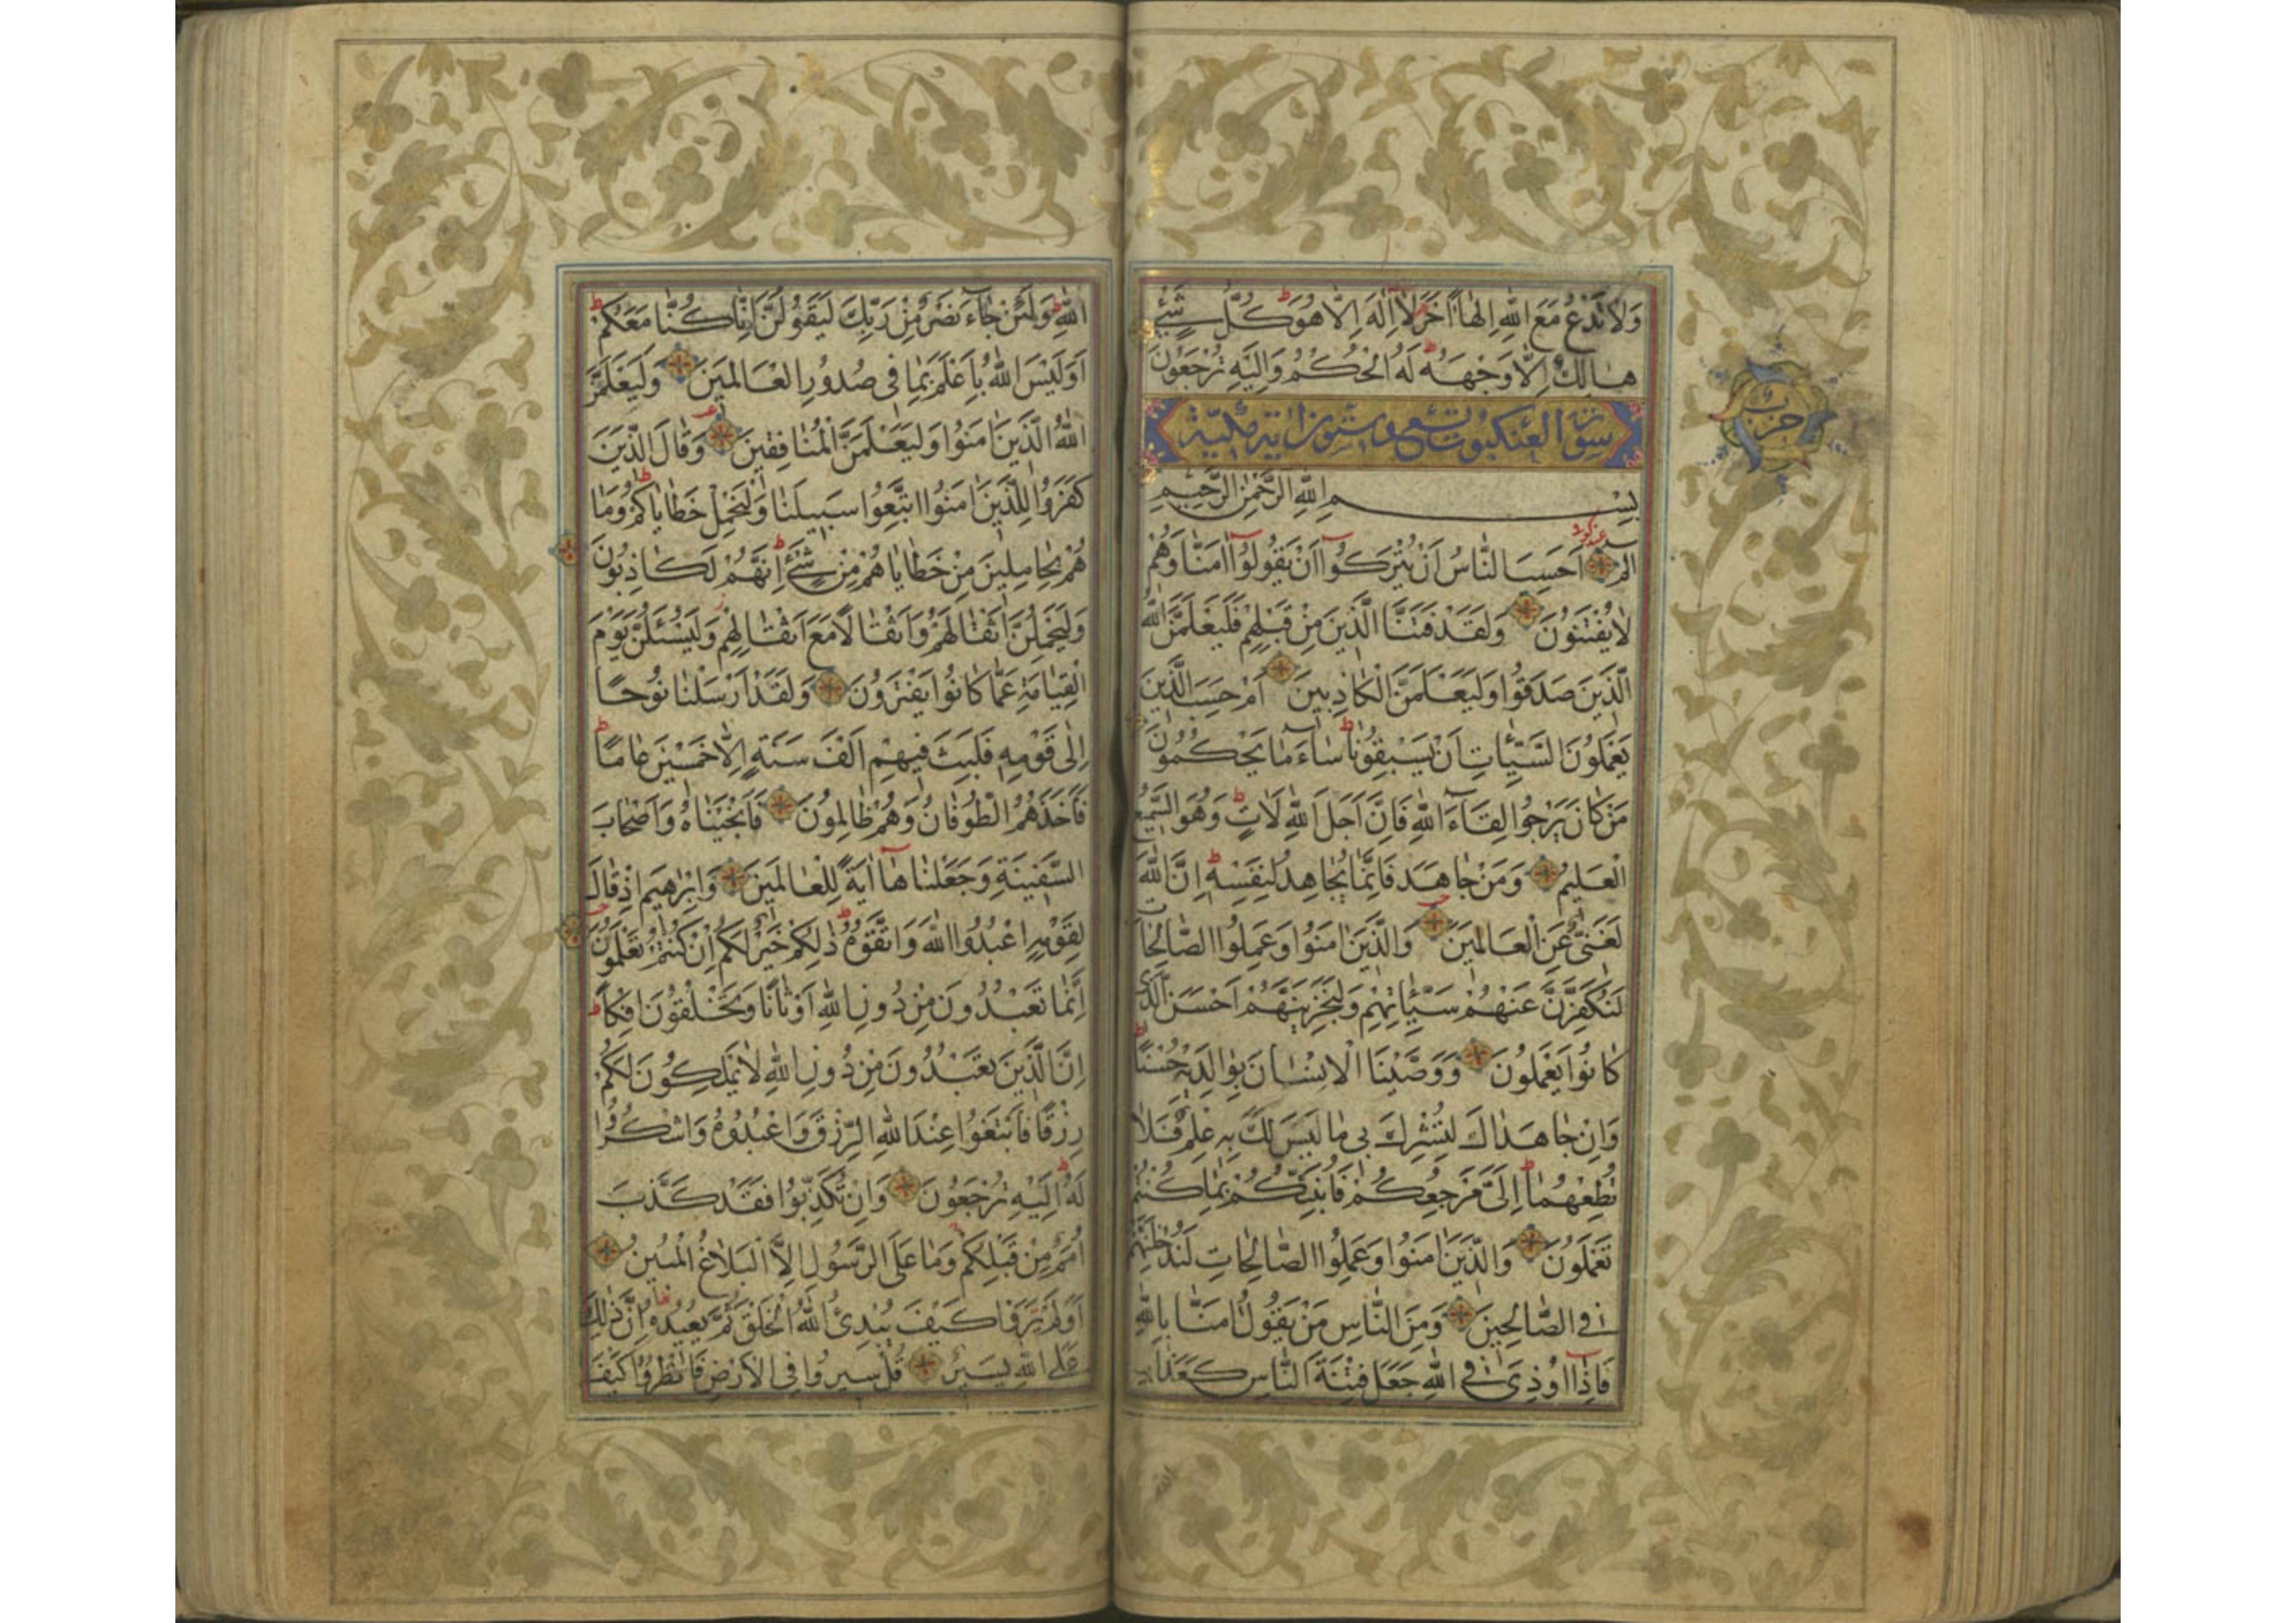 وَلَا تَدْعُ مَعَ اللّٰهِ اِلٰهًا اٰخَرَ لَا اِلٰهَ اِلَّا هُوَ كُلُّ شَيْءٍ
هَالِكٌ اِلَّا وَجْهَهُ لَهُ الْحُكْمُ وَاِلَيْهِ تُرْجَعُونَ
حزب
سورة العنكبوت تسع وستون اية مكية
بِسْمِ اللّٰهِ الرَّحْمٰنِ الرَّحِيمِ
الٓمٓ اَحَسِبَ النَّاسُ اَنْ يُتْرَكُوٓا اَنْ يَقُولُوٓا اٰمَنَّا وَهُمْ
لَا يُفْتَنُونَ وَلَقَدْ فَتَنَّا الَّذِينَ مِنْ قَبْلِهِمْ فَلَيَعْلَمَنَّ اللّٰهُ
الَّذِينَ صَدَقُوا وَلَيَعْلَمَنَّ الْكَاذِبِينَ اَمْ حَسِبَ الَّذِينَ
يَعْمَلُونَ السَّيِّئَاتِ اَنْ يَسْبِقُونَا سَٓاءَ مَا يَحْكُمُونَ
مَنْ كَانَ يَرْجُوا لِقَٓاءَ اللّٰهِ فَاِنَّ اَجَلَ اللّٰهِ لَاٰتٍ وَهُوَ السَّمِيعُ
الْعَلِيمُ وَمَنْ جَاهَدَ فَاِنَّمَا يُجَاهِدُ لِنَفْسِهِ اِنَّ اللّٰهَ
لَغَنِيٌّ عَنِ الْعَالَمِينَ وَالَّذِينَ اٰمَنُوا وَعَمِلُوا الصَّالِحَاتِ
لَنُكَفِّرَنَّ عَنْهُمْ سَيِّئَاتِهِمْ وَلَنَجْزِيَنَّهُمْ اَحْسَنَ الَّذِي
كَانُوا يَعْمَلُونَ وَوَصَّيْنَا الْاِنْسَانَ بِوَالِدَيْهِ حُسْنًا
وَاِنْ جَاهَدَاكَ لِتُشْرِكَ بِي مَا لَيْسَ لَكَ بِهِ عِلْمٌ فَلَا
تُطِعْهُمَا اِلَيَّ مَرْجِعُكُمْ فَاُنَبِّئُكُمْ بِمَا كُنْتُمْ
تَعْمَلُونَ وَالَّذِينَ اٰمَنُوا وَعَمِلُوا الصَّالِحَاتِ لَنُدْخِلَنَّهُمْ
فِي الصَّالِحِينَ وَمِنَ النَّاسِ مَنْ يَقُولُ اٰمَنَّا بِاللّٰهِ
فَاِذَٓا اُوذِيَ فِي اللّٰهِ جَعَلَ فِتْنَةَ النَّاسِ كَعَذَابِ
اللّٰهِ وَلَئِنْ جَٓاءَ نَصْرٌ مِنْ رَبِّكَ لَيَقُولُنَّ اِنَّا كُنَّا مَعَكُمْ
اَوَلَيْسَ اللّٰهُ بِاَعْلَمَ بِمَا فِي صُدُورِ الْعَالَمِينَ وَلَيَعْلَمَنَّ
اللّٰهُ الَّذِينَ اٰمَنُوا وَلَيَعْلَمَنَّ الْمُنَافِقِينَ وَقَالَ الَّذِينَ
كَفَرُوا لِلَّذِينَ اٰمَنُوا اتَّبِعُوا سَبِيلَنَا وَلْنَحْمِلْ خَطَايَاكُمْ وَمَا
هُمْ بِحَامِلِينَ مِنْ خَطَايَاهُمْ مِنْ شَيْءٍ اِنَّهُمْ لَكَاذِبُونَ
وَلَيَحْمِلُنَّ اَثْقَالَهُمْ وَاَثْقَالًا مَعَ اَثْقَالِهِمْ وَلَيُسْئَلُنَّ يَوْمَ
الْقِيَامَةِ عَمَّا كَانُوا يَفْتَرُونَ وَلَقَدْ اَرْسَلْنَا نُوحًا
اِلٰى قَوْمِهِ فَلَبِثَ فِيهِمْ اَلْفَ سَنَةٍ اِلَّا خَمْسِينَ عَامًا
فَاَخَذَهُمُ الطُّوفَانُ وَهُمْ ظَالِمُونَ فَاَنْجَيْنَاهُ وَاَصْحَابَ
السَّفِينَةِ وَجَعَلْنَاهَٓا اٰيَةً لِلْعَالَمِينَ وَاِبْرٰهِيمَ اِذْ قَالَ
لِقَوْمِهِ اعْبُدُوا اللّٰهَ وَاتَّقُوهُ ذٰلِكُمْ خَيْرٌ لَكُمْ اِنْ كُنْتُمْ تَعْلَمُونَ
اِنَّمَا تَعْبُدُونَ مِنْ دُونِ اللّٰهِ اَوْثَانًا وَتَخْلُقُونَ اِفْكًا
اِنَّ الَّذِينَ تَعْبُدُونَ مِنْ دُونِ اللّٰهِ لَا يَمْلِكُونَ لَكُمْ
رِزْقًا فَابْتَغُوا عِنْدَ اللّٰهِ الرِّزْقَ وَاعْبُدُوهُ وَاشْكُرُوا
لَهُ اِلَيْهِ تُرْجَعُونَ وَاِنْ تُكَذِّبُوا فَقَدْ كَذَّبَ
اُمَمٌ مِنْ قَبْلِكُمْ وَمَا عَلَى الرَّسُولِ اِلَّا الْبَلَاغُ الْمُبِينُ
اَوَلَمْ يَرَوْا كَيْفَ يُبْدِئُ اللّٰهُ الْخَلْقَ ثُمَّ يُعِيدُهُ اِنَّ ذٰلِكَ
عَلَى اللّٰهِ يَسِيرٌ قُلْ سِيرُوا فِي الْاَرْضِ فَانْظُرُوا كَيْفَ